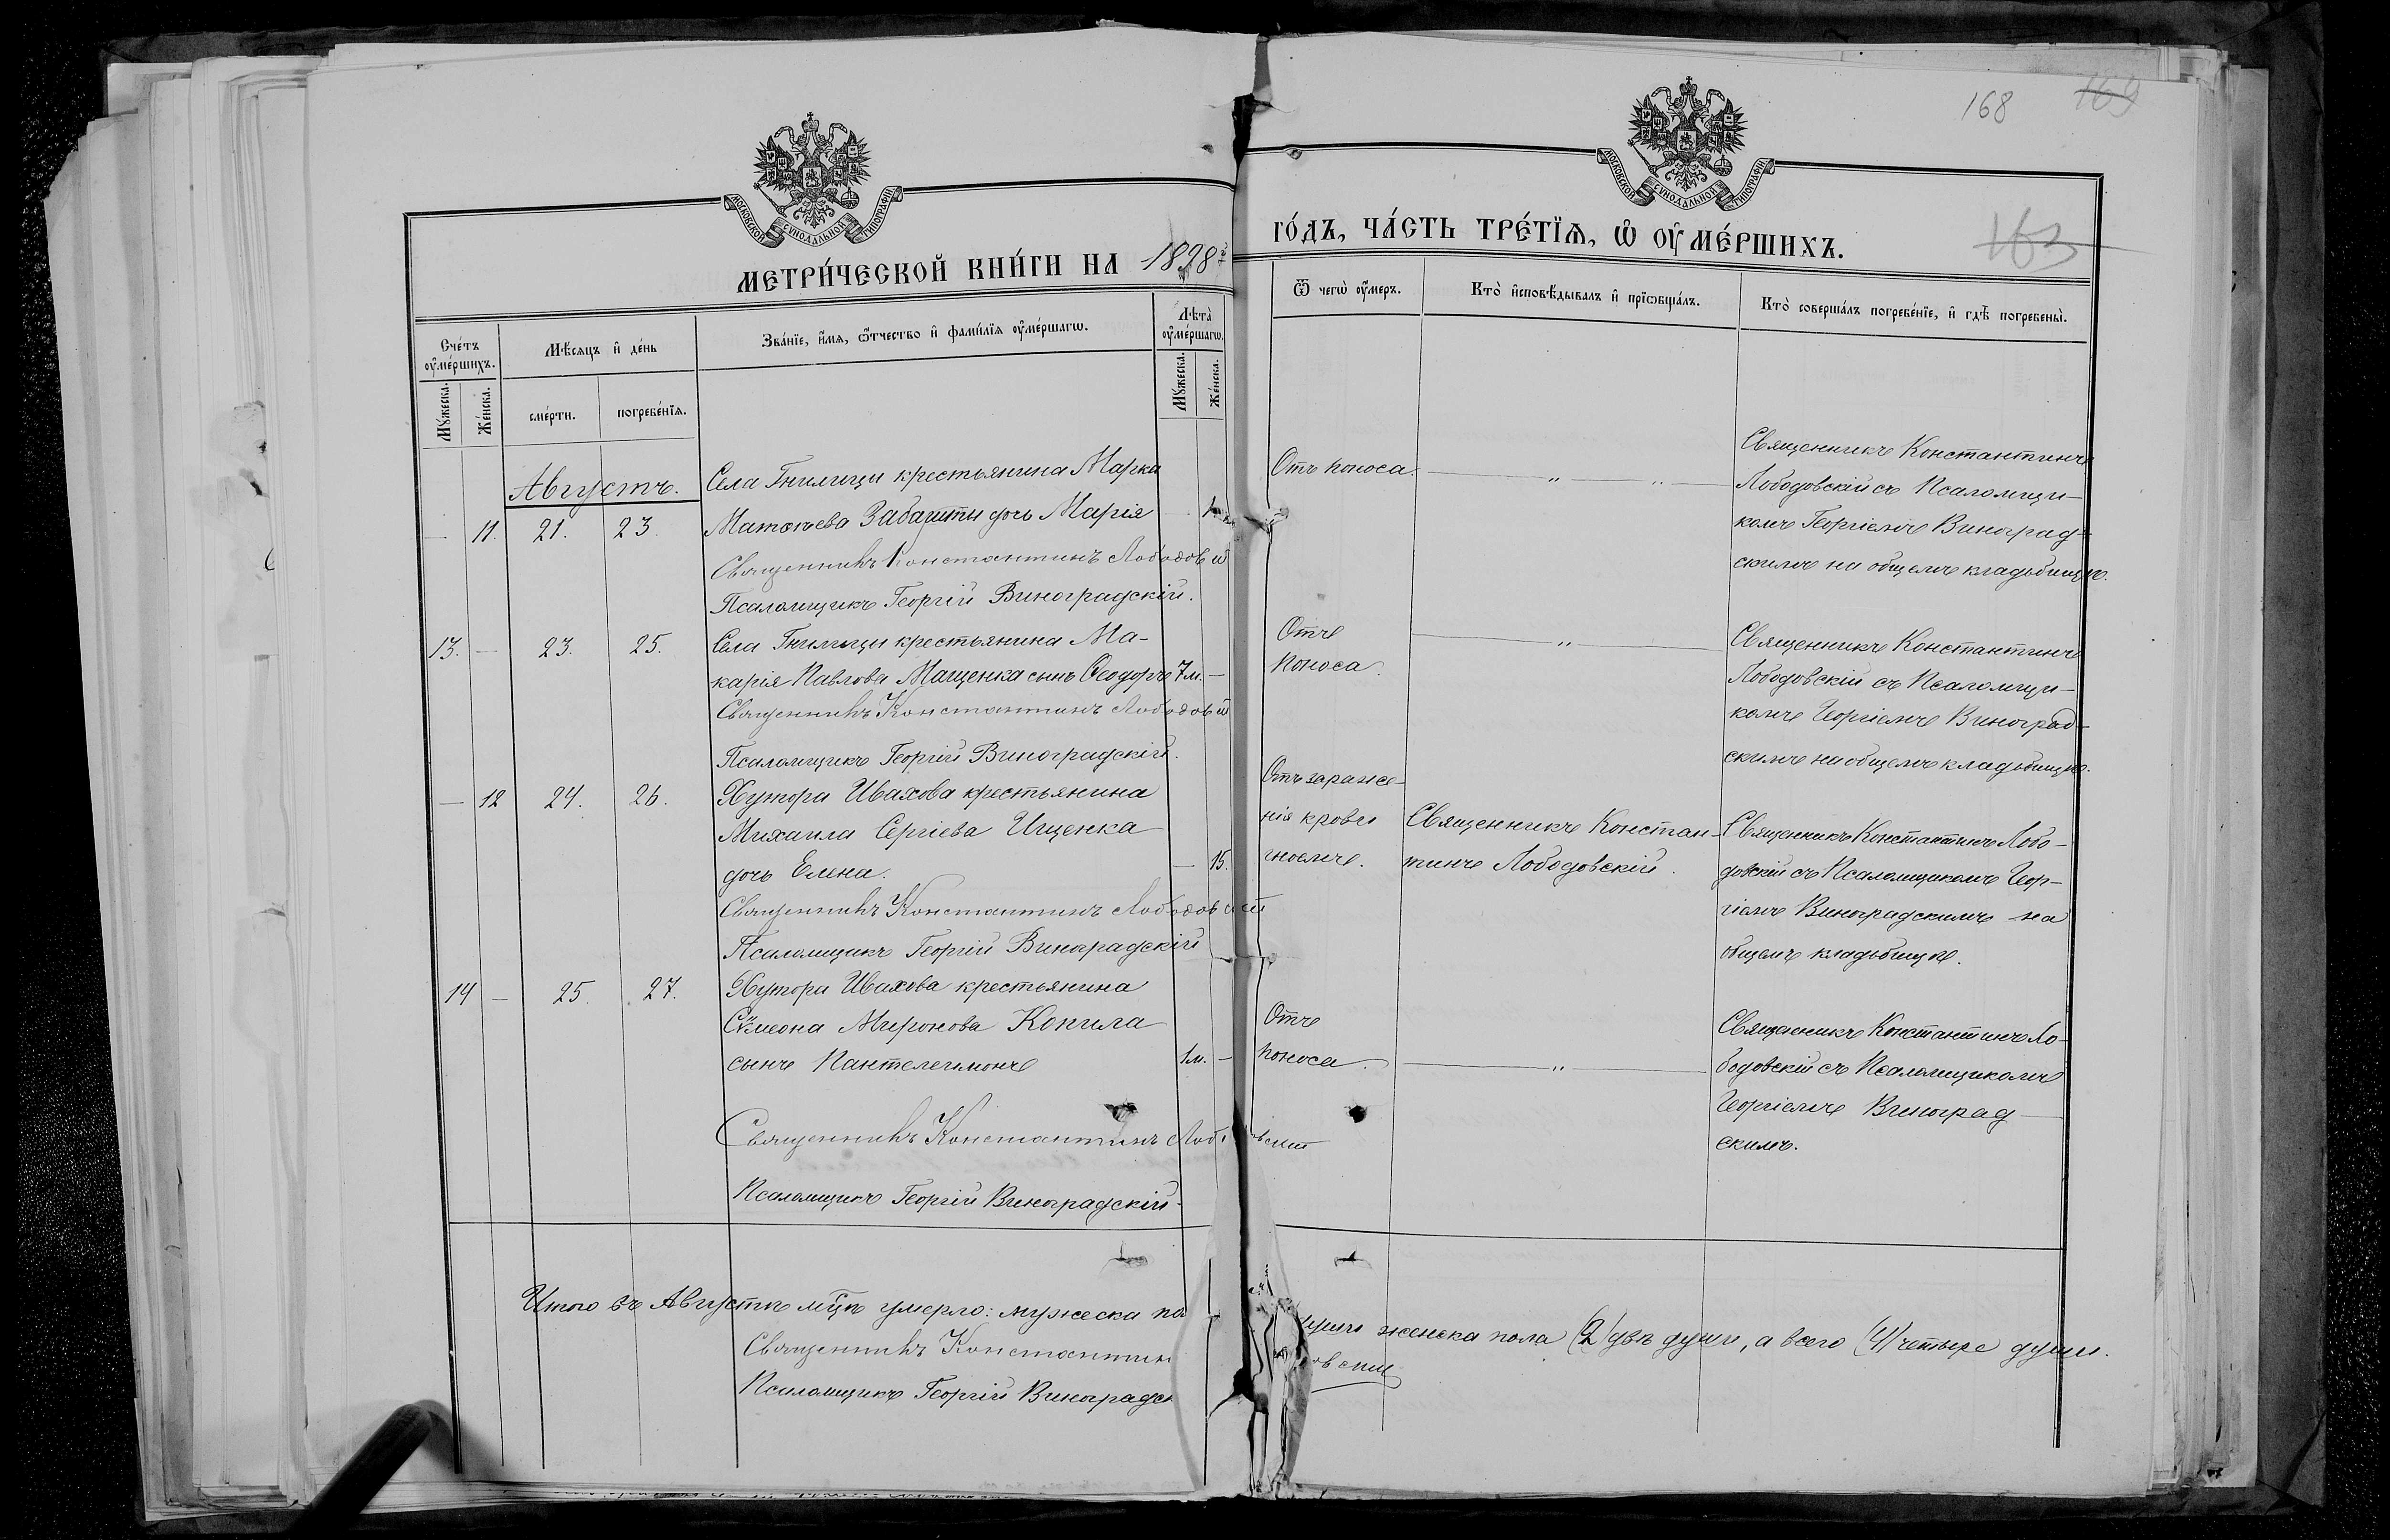 168
169
163
МОСКОВСКОЙ СУНОДАЛЬНОЙ ТИПОГРАФІИ
МОСКОВСКОЙ СУНОДАЛЬНОЙ ТИПОГРАФІИ
МЕТРИ́ЧЕСКОЙ КНИ́ГИ НА 1898й
ГО́ДЪ, ЧА́СТЬ ТРЕ́ТЇѦ, Ѽ ОУ҆МЕ́РШИХЪ.
Сче́тъ оу҆ме́ршихъ.
Мѣ́сяцъ и҆ де́нь
Зва́нїе, и҆́мѧ, ѻ҆́тчество и҆ фами́лїѧ оу҆ме́ршагѡ.
Лѣ́та̀ оу҆ме́ршагѡ.
Мꙋ́жеска.
Же́нска.
сме́рти.
погребе́нїѧ.
Мꙋ́жеска.
Же́нска.
Ѿ чегѡ̀ оу҆́меръ.
Кто̀ и҆сповѣ́дывалъ и҆ прїѡбща́лъ.
Кто̀ соверша́лъ погребе́нїе, и҆ гдѣ̀ погребены̀.
Августъ.
Села Гнилицы крестьянина Марка
— 11. 21. 23. Матѳѣева Забашты дочь Марія
Священникъ Константинъ Лободов й
Псаломщикъ Георгій Виноградскій.
Отъ поноса. — „ — „ —
Священникъ Константинъ
Лободовскій съ Псаломщи-
комъ Георгіемъ Виноград-
скимъ на общемъ кладьбищѣ.
13. — 23. 25. Села Гнилицы крестьянина Ма-
карія Павлова Мащенка сынъ Ѳеодоръ 7 м. —
Священникъ Константинъ Лободов й
Псаломщикъ Георгій Виноградскій.
Отъ
поноса. — „ —
Священникъ Константинъ
Лободовскій съ Псаломщи-
комъ Георгіемъ Виноград-
скимъ на общемъ кладьбищѣ.
— 12 24. 26. Хутора Ивахова крестьянина
Михаила Сергіева Ищенка
дочь Елена. — 15.
Священникъ Константинъ Лободов кій
Псаломщикъ Георгій Виноградскій
Отъ зараже-
нія крови
гноемъ.
Священникъ Констан-
тинъ Лободовскій.
Священникъ Константинъ Лобо-
довскій съ Псаломщикомъ Геор-
гіемъ Виноградскимъ на
общемъ кладьбищѣ.
14 — 25. 27. Хутора Ивахова крестьянина
Сѵмеона Миронова Копила
сынъ Пантелеимонъ 1 м. —
Священникъ Константинъ Лоб овскій
Псаломщикъ Георгій Виноградскій.
Отъ
поноса. — „ —
Священникъ Константинъ Ло-
бодовскій съ Псаломщикомъ
Георгіемъ Виноград
скимъ.
Итого въ Августѣ мцѣ умерло: мужеска по
души женска пола (2) двѣ души, а всего (4) четыре души.
Священникъ Константин
овскій
Псаломщикъ Георгій Виноградск